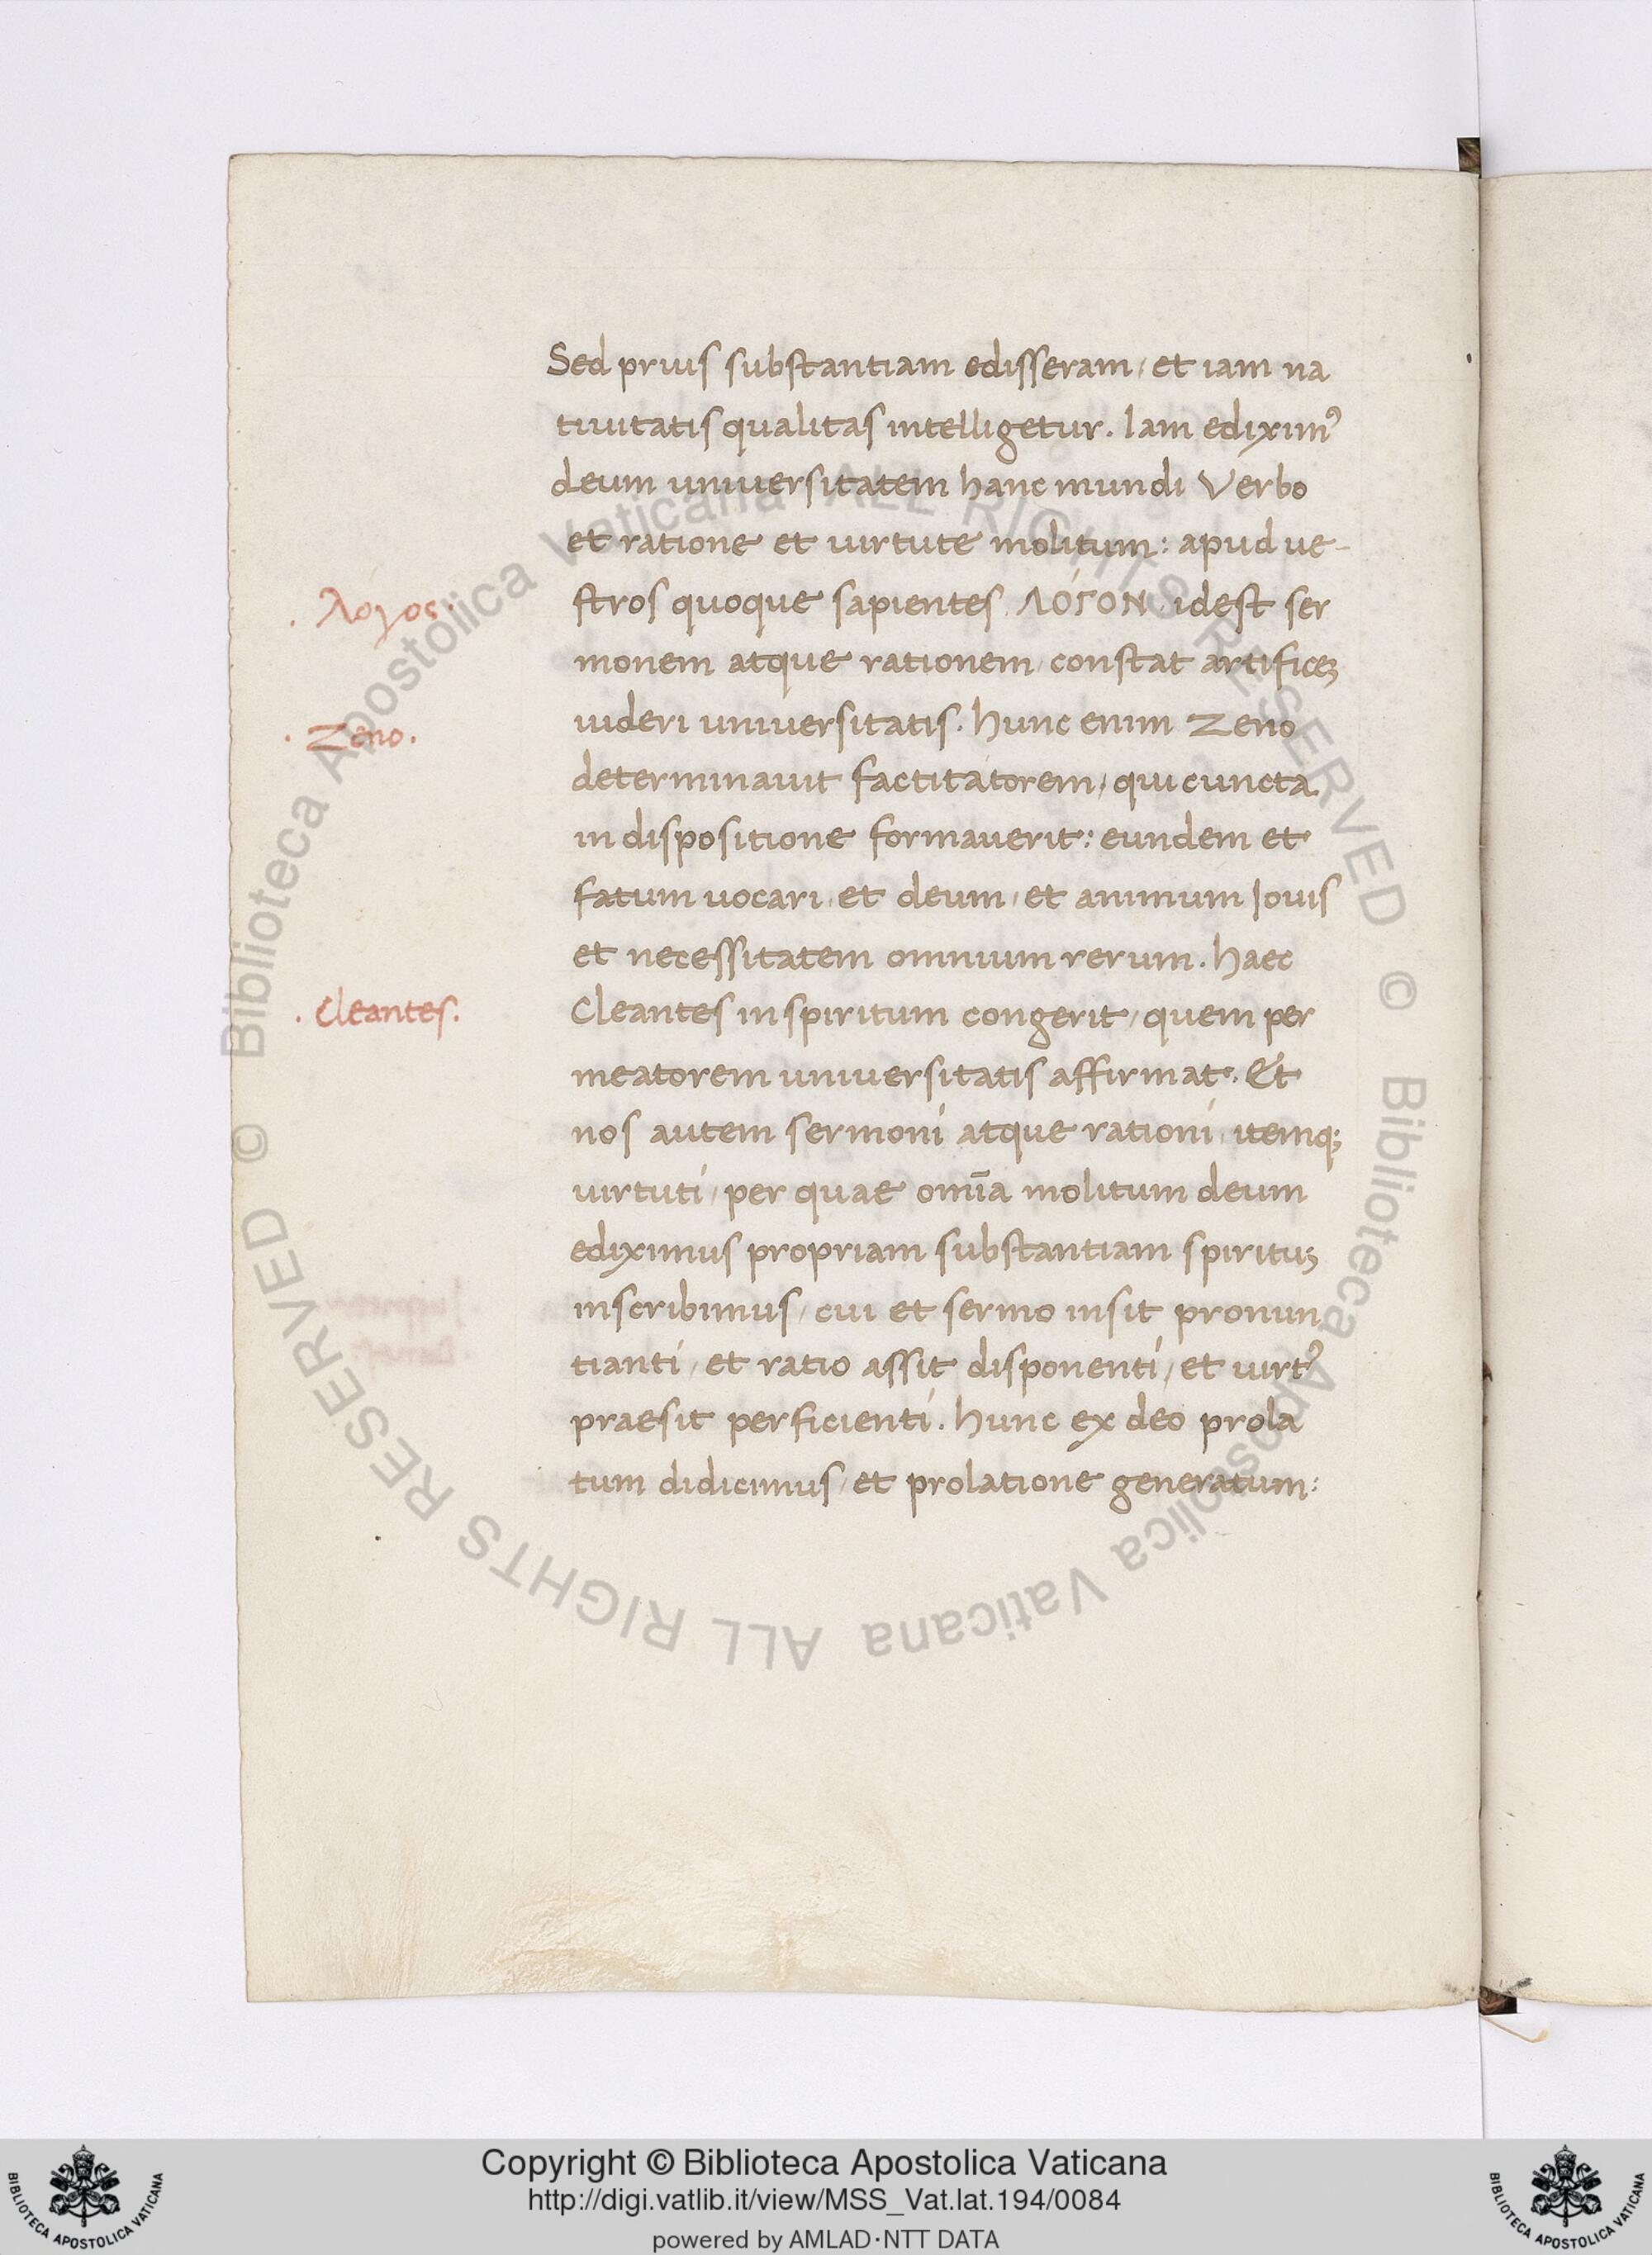 Sed prius substantiam edisseram, et iam na
tiuitatis qualitas intelligetur. Iam ediximꝰ
deum uniuersitatem hanc mundi Verbo
et ratione et uirtute molitum: apud ue-
. λόγος. stros quoque sapientes ΛΌΓΟΝ idest ser
monem atque rationem, constat artificeꝫ
. Zeno. uideri uniuersitatis. hunc enim Zeno
determinauit factitatorem, qui cuncta
in dispositione formauerit: eundem et
fatum uocari, et deum, et animum Iouis
et necessitatem omnium rerum. haec
. Cleantes. Cleantes in spiritum congerit, quem per
meatorem uniuersitatis affirmat. Et
nos autem sermoni atque rationi, itemqꝫ
uirtuti, per quae om̄ia molitum deum
ediximus propriam substantiam spirituꝫ
inscribimus, cui et sermo insit pronun
tianti, et ratio assit disponenti, et uirtꝰ
praesit perficienti. hunc ex deo prola
tum didicimus, et prolatione generatum:
© Biblioteca Apostolica Vaticana ALL RIGHTS RESERVED © Biblioteca Apostolica Vaticana ALL RIGHTS RESERVED
Copyright © Biblioteca Apostolica Vaticana
http://digi.vatlib.it/view/MSS_Vat.lat.194/0084
powered by AMLAD·NTT DATA
BIBLIOTECA APOSTOLICA VATICANA
BIBLIOTECA APOSTOLICA VATICANA